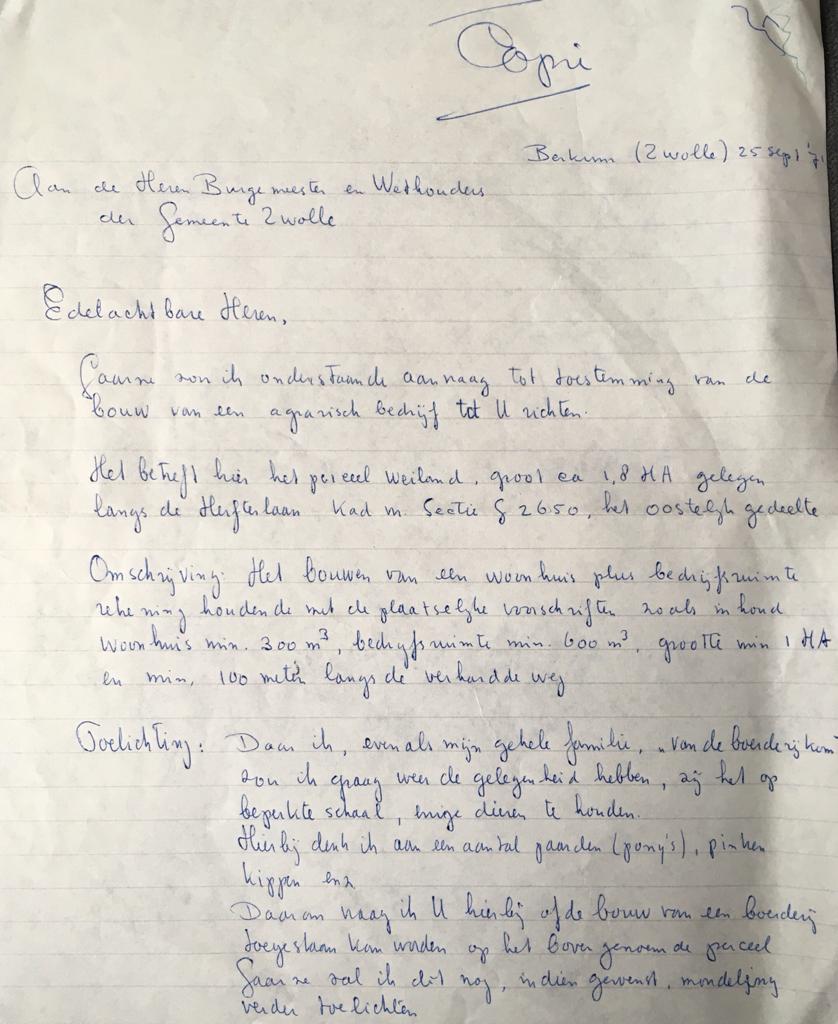 Copie
Berkum (Zwolle) 25 sept '7
Aan de Heren Burgemeester en Wethouders
der Gemeente Zwolle
Edelachtbare Heren,
Gaarne zou ik onderstaande aanvraag tot toestemming van de
bouw van een agrarisch bedrijf tot U richten.
Het betreft hier het perceel weiland, groot ca 1,8 HA gelegen
langs de Herfterlaan Kad m. Sectie G 2650, het oostelijk gedeelte
Omschrijving: Het bouwen van een woonhuis plus bedrijfsruimte
rekening houdende met de plaatselijke voorschriften zoals inhoud
woonhuis min. 300 m³, bedrijfsruimte min. 600 m³, grootte min 1 HA
en min. 100 meter langs de verharde weg
Toelichting: Daar ik, evenals mijn gehele familie, "van de boerderij kom"
zou ik graag weer de gelegenheid hebben, zij het op
beperkte schaal, enige dieren te houden.
Hierbij denk ik aan een aantal paarden (pony's), pinken
kippen enz.
Daarom vraag ik U hierbij of de bouw van een boerderij
toegestaan kan worden op het boven genoemde perceel
Gaarne zal ik dit nog, indien gewenst, mondeling
verder toelichten